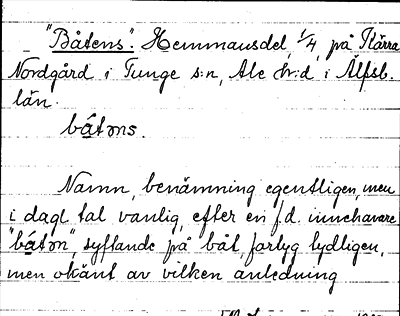 "Båtens". Hemmansdel, 1/4, på
Nordgård i Tunge s:n, Ale h:d, i Älfsb.
län.
båtəns.
Namn, benämning egentligen, men
i dagl. tal vanlig, efter en f.d. innehavare
"båtən", syftande på båt, farlyg tydligen,
men okänt av vilken anledning